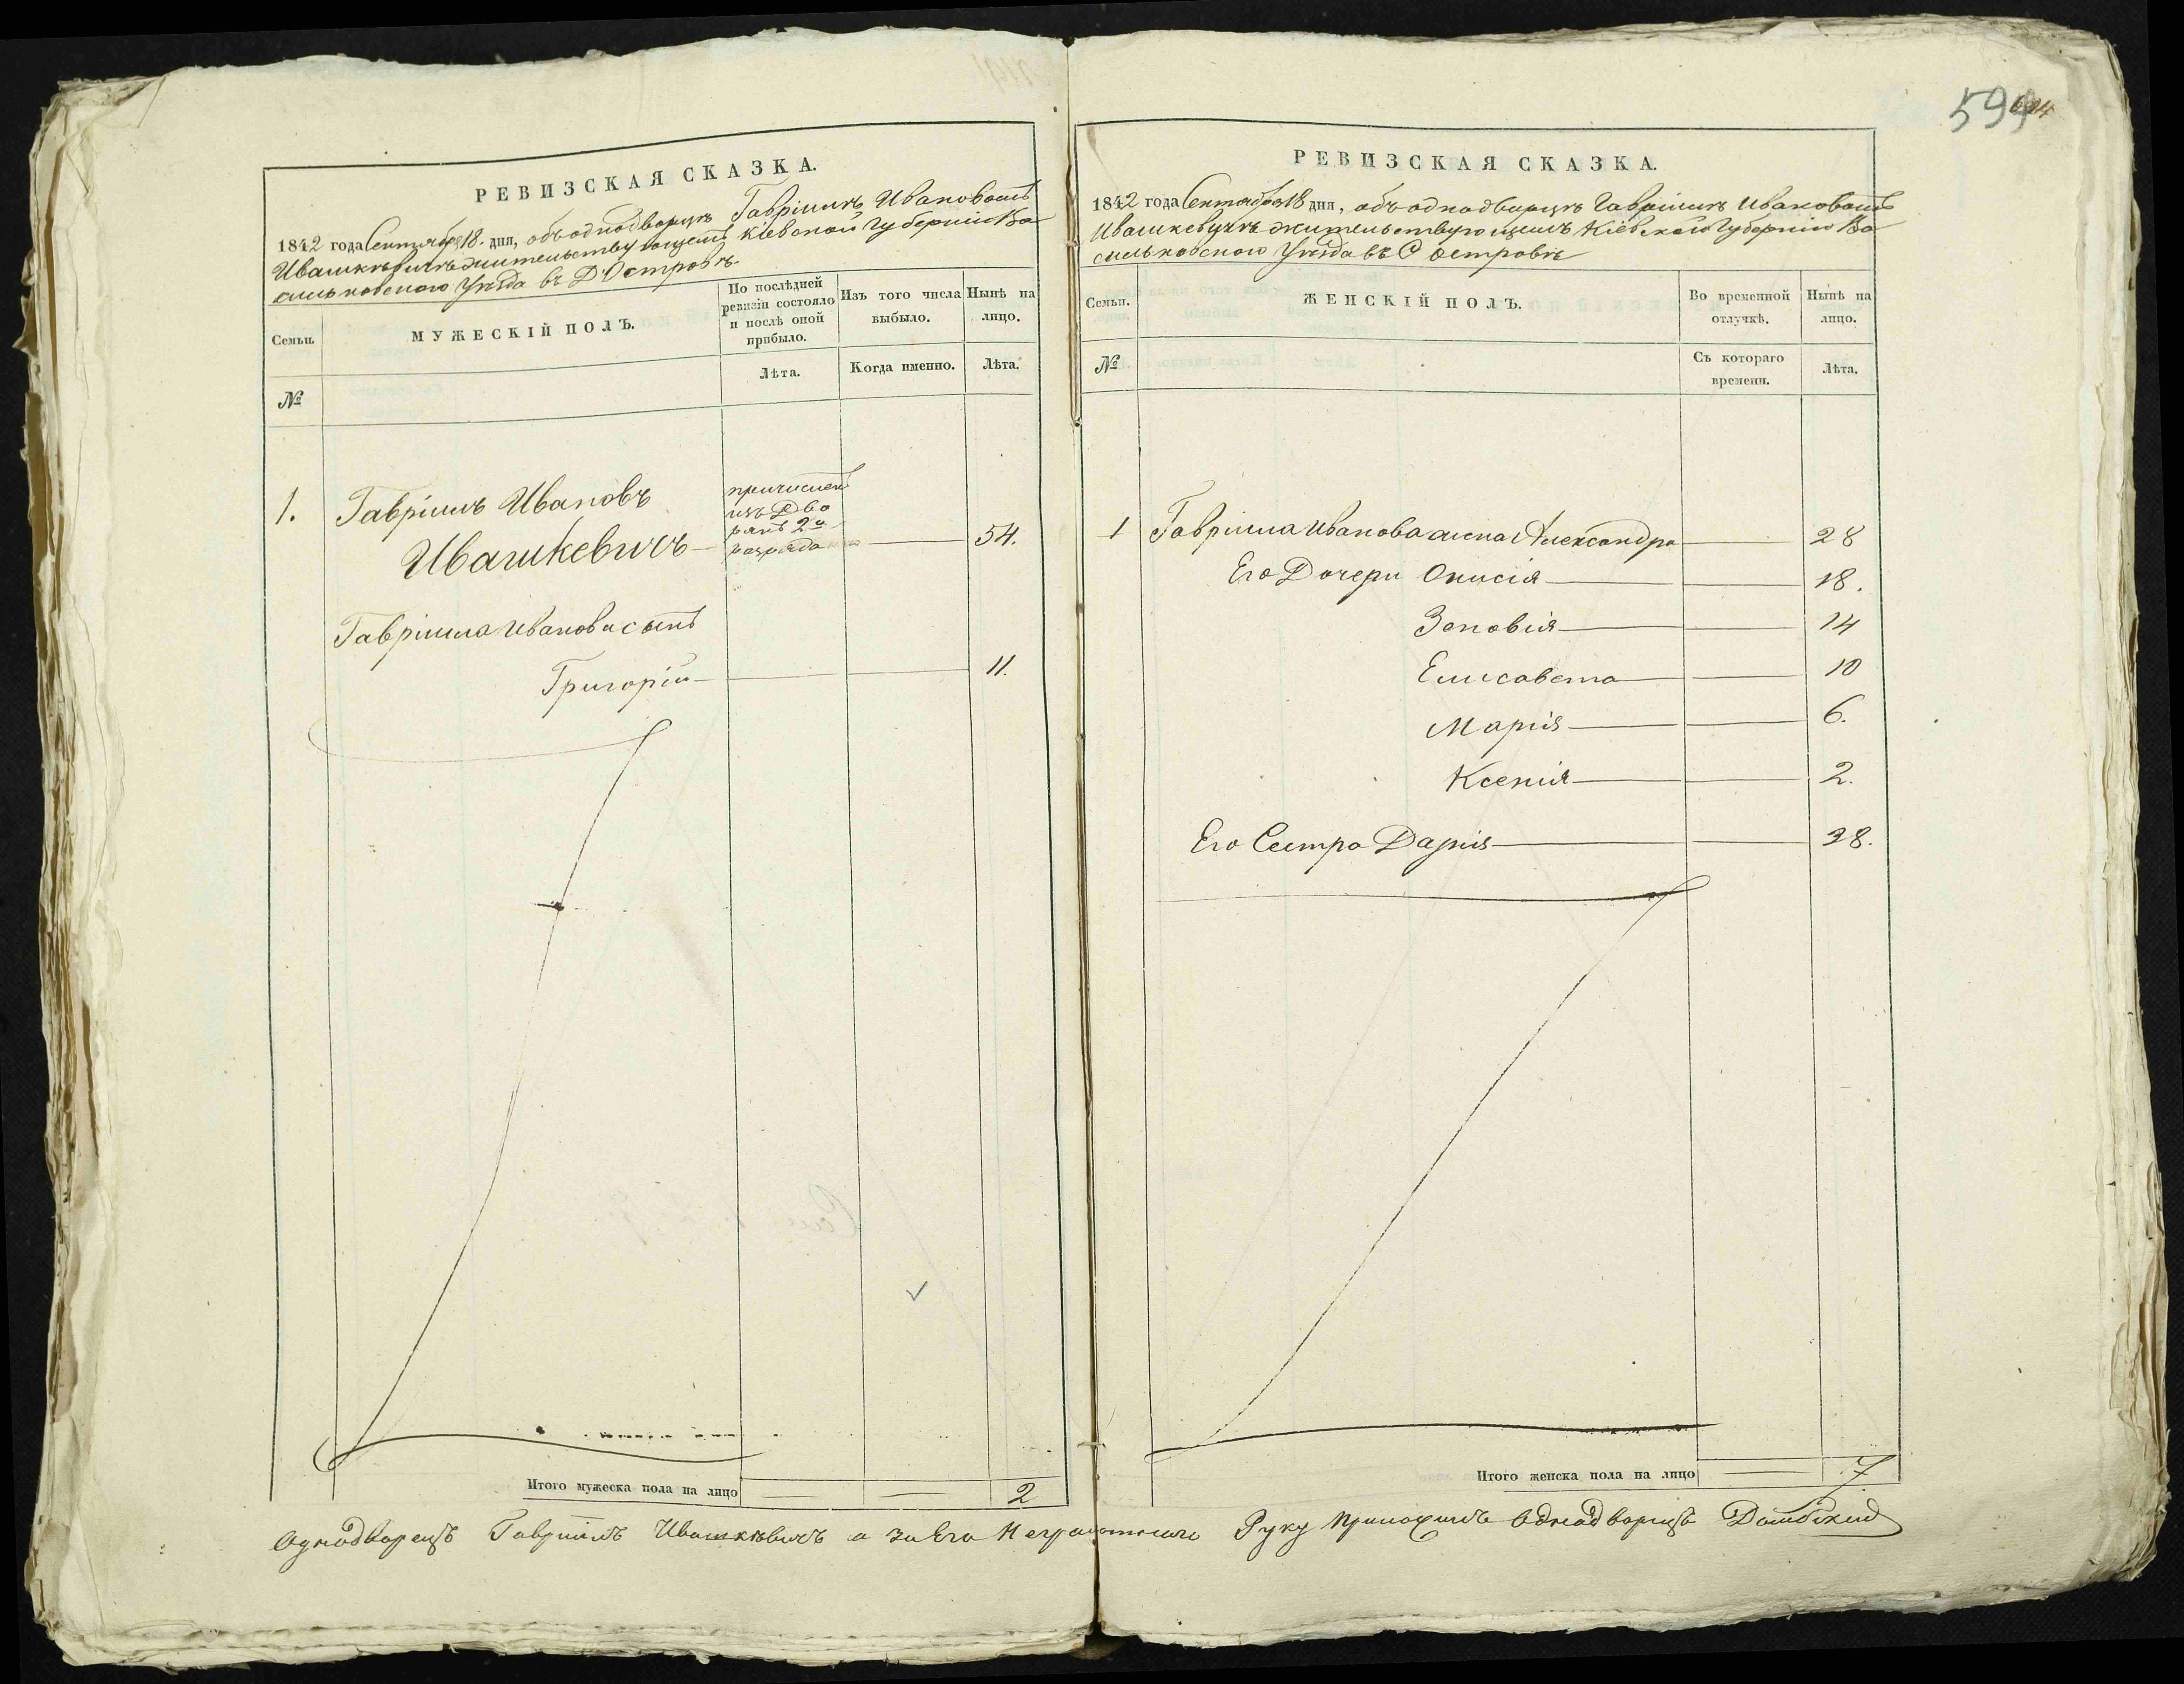 599
РЕВИЗСКАЯ СКАЗКА.
1842 года Сентября 18. дня, объ однодворцѣ Гавріилѣ Ивановомъ
Ивашкѣвичѣ жительствующемъ Кіевской Губерніи Ва-
сильковского Уѣзда въ Д Островѣ.
Семьи.
МУЖЕСКІЙ ПОЛЪ.
По послѣдней
ревизіи состояло
и послѣ оной
прибыло.
Изъ того числа
выбыло.
Нынѣ на
лицо.
№
Лѣта.
Когда именно.
Лѣта.
1. Гавріилъ Ивановъ
Ивашкевичъ
причисленъ
изъ Дво
рянъ 2го
разряда
54.
Гавріила Иванова сынъ
Григорій 11.
Итого мужеска пола на лицо 2
РЕВИЗСКАЯ СКАЗКА.
1842 года Сентября 18 дня, объ однодворцѣ Гавріилѣ Ивановомъ
Ивашкевичѣ жительствующемъ Кіевской Губерніи Ва
сильковского Уѣзда въ С Островѣ
Семьи.
ЖЕНСКІЙ ПОЛЪ.
Во временной
отлучкѣ.
Нынѣ на
лицо.
№
Съ котораго
времени.
Лѣта.
1 Гавріила Иванова жена Александра 28
Его Дочери Онисія 18.
Зеновія 14
Елисавета 10
Марія 6.
Ксенія 2.
Его Сестра Дарія 38.
Итого женска пола на лицо 7
Однодворецъ Гавриилъ Ивашкѣвичъ а за Его Неграмотного Руку приложилъ Однодворецъ